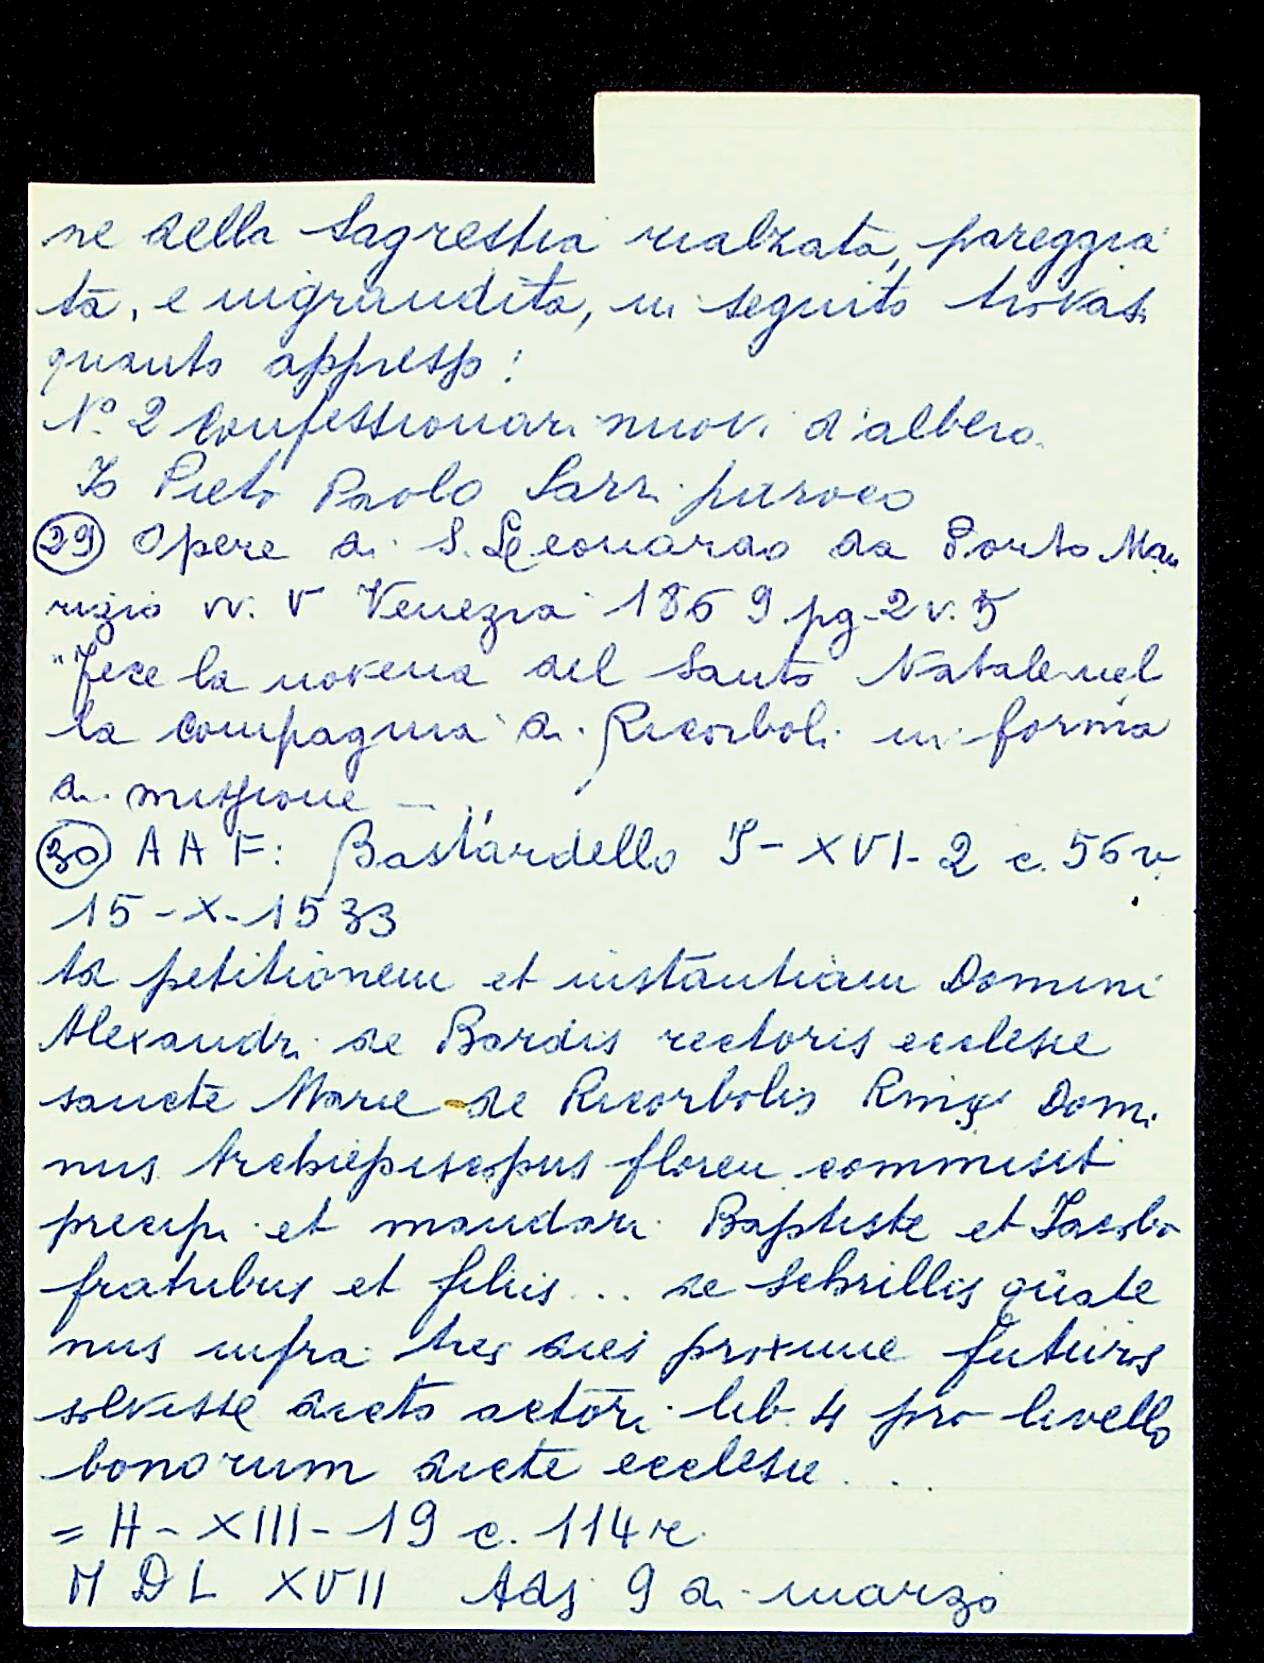 ne della Sagrestia rialzata, pareggia
ta, e ingrandita, in seguito trovasi
quanto appresso:
N.º 2 Confessionari nuovi d'albero.
Io Pietro Paolo Sarri parroco
(29) Opere di S. Leonardo da Porto Mau
rizio vv. V Venezia 1869 pg. 2 v. 5
"Fece la novena del Santo Natale nel
la compagnia di Ricorboli in forma
di missione - .."
(30) A A F: Bastardello I - XVI - 2 c. 56 v.
15 - X - 1533
Ad petitionem et instantiam Domini
Alexandri de Bardis rectoris ecclesie
sancte Marie de Ricorbolis Domi
nus Archiepiscopus floren commisit
precipi et mandari Baptiste et Jacobo
fratribus et filiis ... de quate
nus infra tres dies proxime futuros
solvisse dicto actori lib. 4 pro livello
bonorum dicte ecclesie ...
= H - XIII - 19 c. 114 r.
M D L XVII Adj 9 di marzo